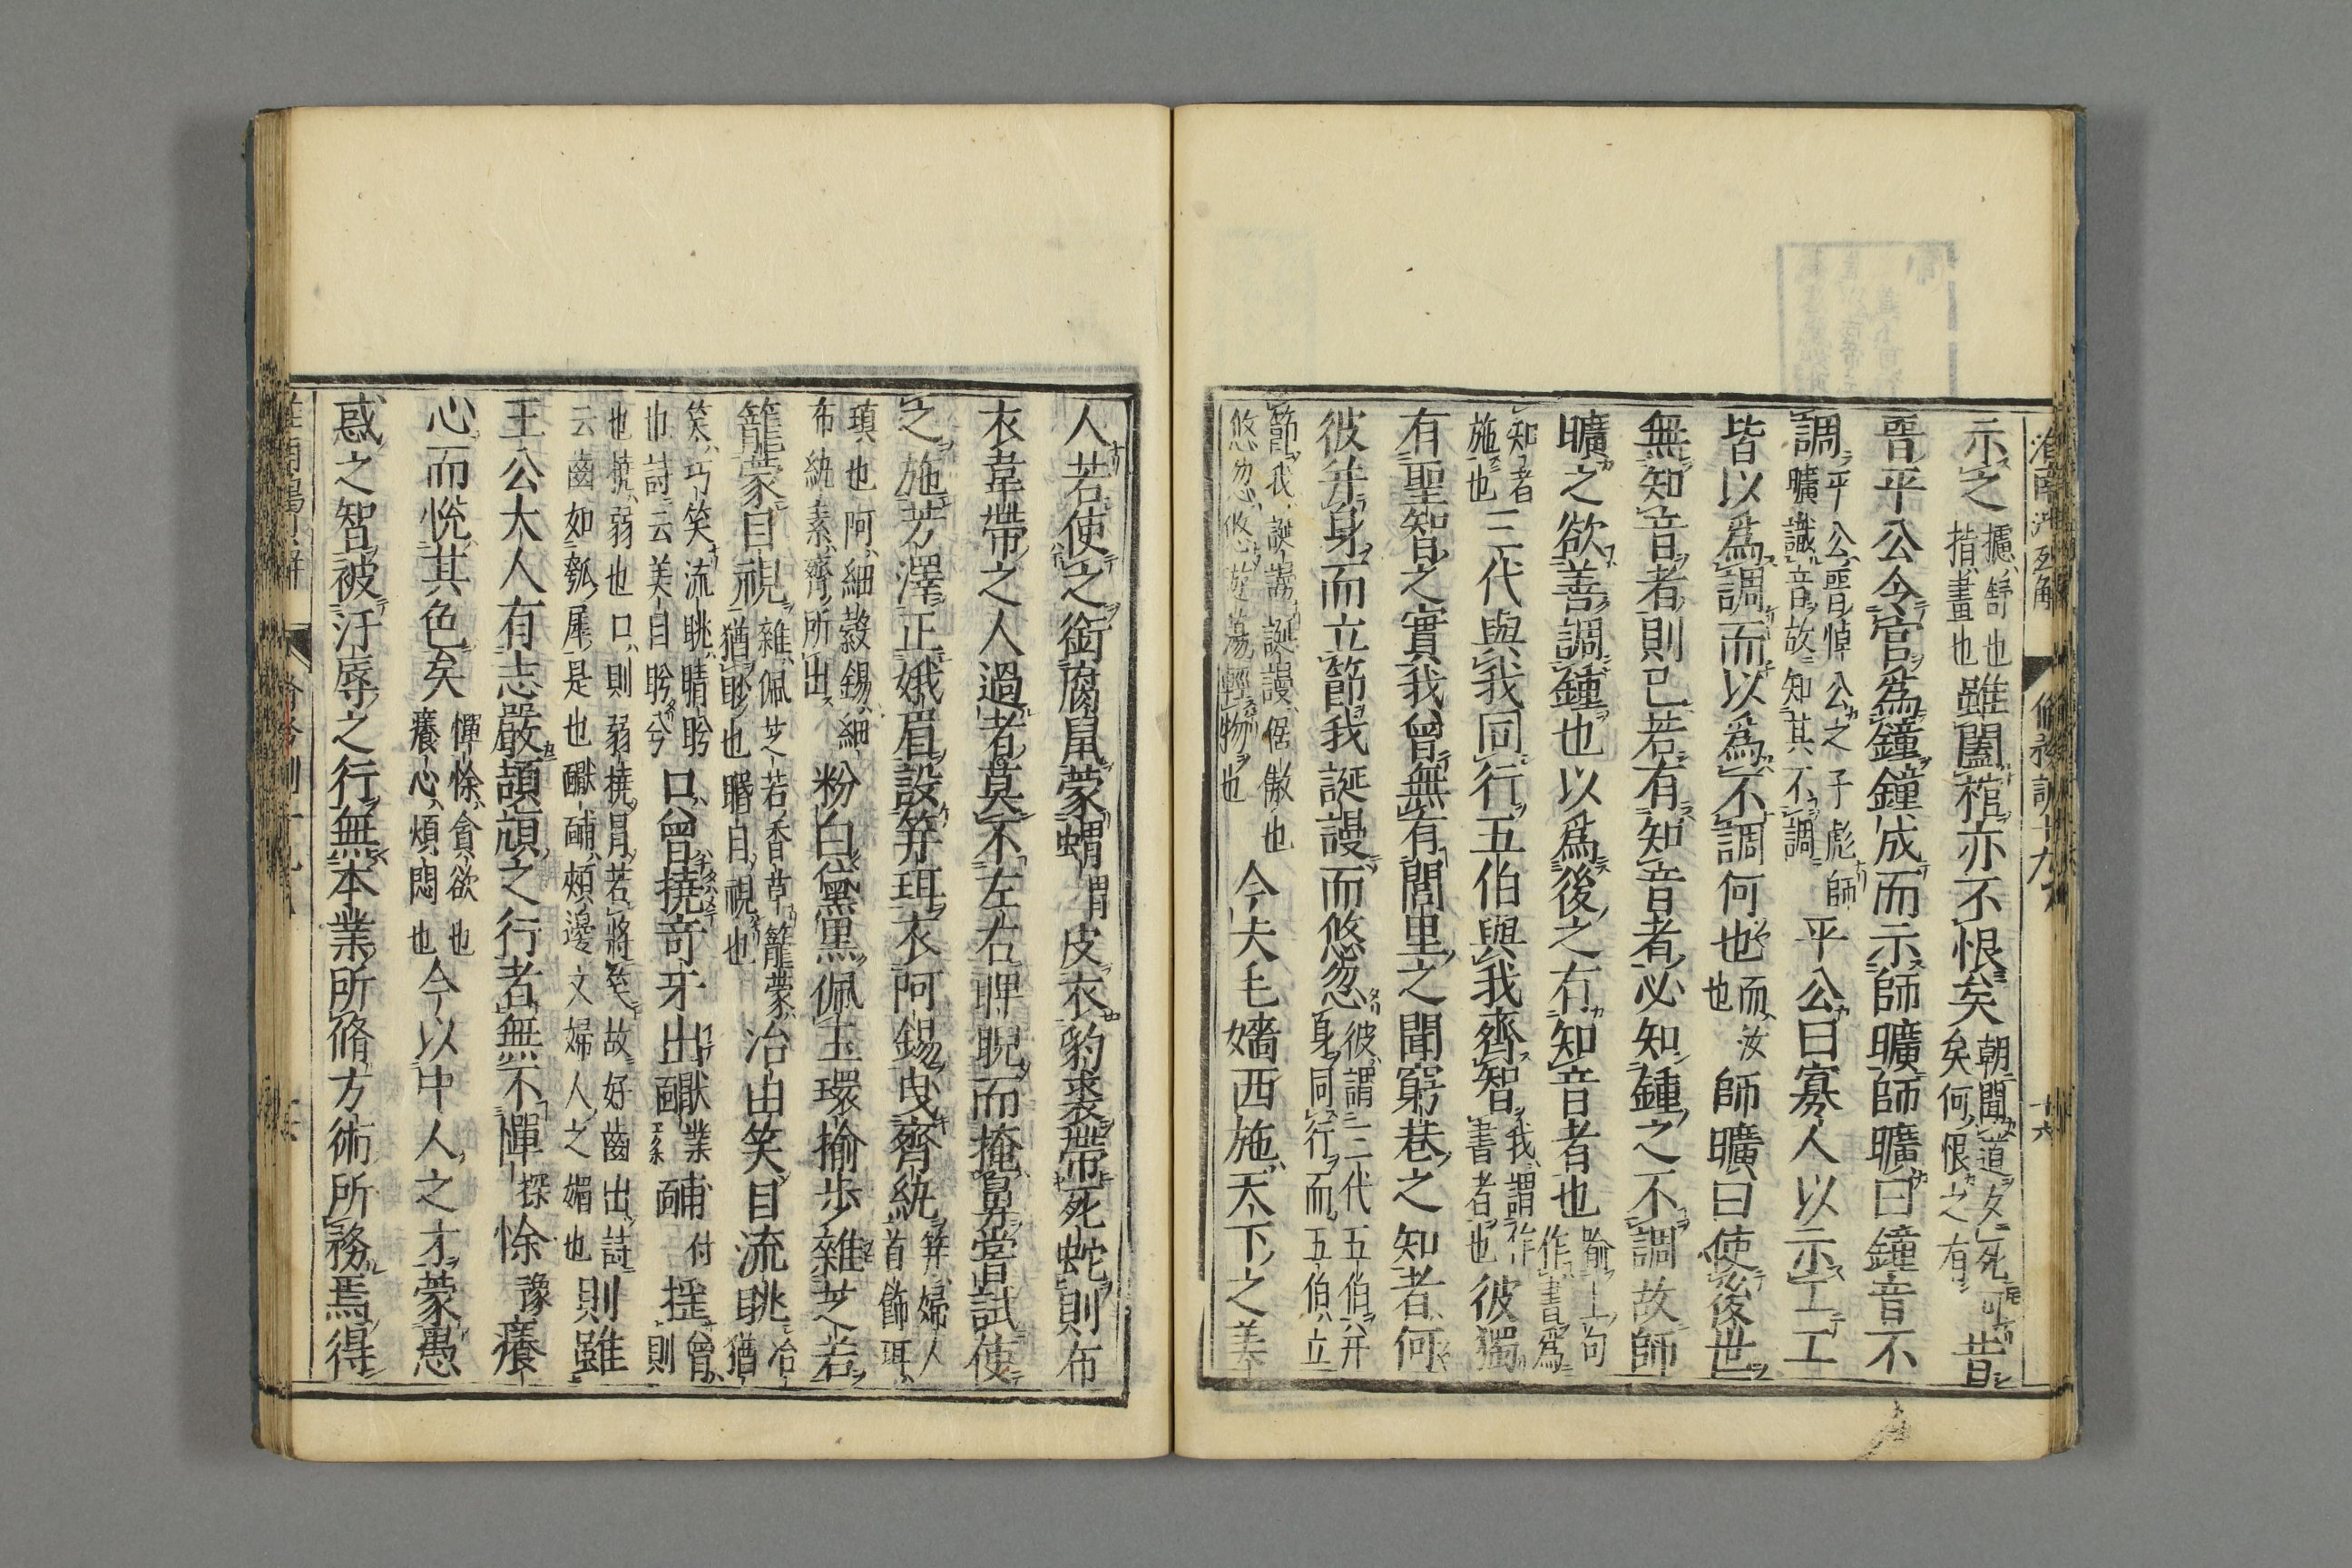 淮南鴻烈解 脩務訓十九 十六
示之攄舒也揩畫也雖闔棺亦不恨矣朝聞道夕死可矣何恨之有昔
晋平公令官爲鐘鐘成而示師曠師曠曰鐘音不
調平公晋悼公之子彪師曠識音故知其不調平公曰寡人以示工工
皆以爲調而以爲不調何也而汝也師曠曰使後世
無知音者則已若有知音者必知鍾之不調故師
曠之欲善調鍾也以爲後之有知音者也喻上句作書爲
知者施也三代與我同行五伯與我齊智我謂作書者也彼獨
有聖智之實我曾無有閭里之聞窮巷之知者何
彼并身而立節我誕謾而悠忽彼謂三代五伯并身同行而五伯立
節我誕謾誕謾倨傲也悠忽悠遊蕩輕物也今夫毛嬙西施天下之美
人若使之銜腐鼠蒙蝟謂皮衣豹裘帶死蛇則布
衣韋帶之人過者莫不左右睥睨而掩鼻嘗試使
之施芳澤正娥眉設笄珥衣阿錫曳齊紈笄婦人首飾珥
瑱也阿細縠錫細布紈素齊所出粉白黛黑佩玉環揄步雜芝若
籠蒙目視雜佩芝若香草籠蒙猶眇也瞤目視也冶由笑目流眺冶猶
笑巧笑流眺睛盻也詩云美目盻兮口曾撓奇牙出㽉業䩉付搖曾則
也撓弱也口則弱撓冐若將笑故好齒出詩云齒如瓠犀是也㽉䩉頰邊文婦人之媚也則雖
王公大人有志嚴頡頏之行者無不憚探悇豫癢
心而悅其色矣憚悇貪欲也癢心煩悶也今以中人之才蒙愚
惑之智被汙辱之行無本業所脩方術所務焉得